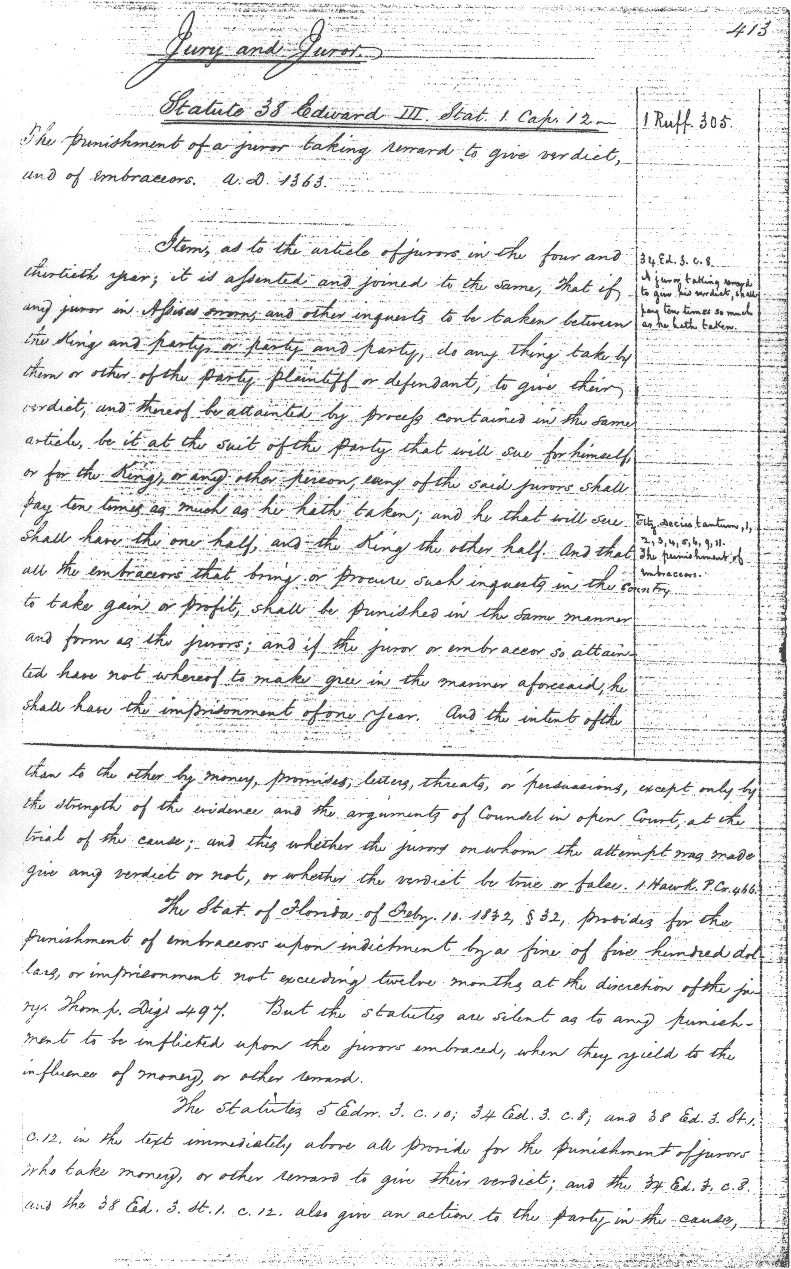 413
Jury and Juror.
Statute 38 Edward III. Stat. 1. Cap. 12
1 Ruff. 305.
The punishment of a juror taking reward to give verdict,
and of embraceors. A.D. 1363.
Item, as to the article of jurors in the four and
thirtieth year; it is assented and joined to the same, that if
any juror in Assises sworn, and other inquests to be taken between
the King and party, or party and party, do any thing take by
them or other of the party plaintiff or defendant, to give their
verdict, and thereof be attainted by process contained in the same
article, be it at the suit of the party that will sue for himself,
or for the King, or any other person, every of the said jurors shall
pay ten times as much as he hath taken; and he that will sue
shall have the one half, and the King the other half. And that
all the embraceors that bring or procure such inquests in the country
to take gain or profit, shall be punished in the same manner
and form as the jurors; and if the juror or embraceor so attain-
ted have not whereof to make gree in the manner aforesaid, he
shall have the imprisonment of one year. And the intent of the
34 Ed. 3. c. 8.
A juror taking reward
to give his verdict, shall
pay ten times so much
as he hath taken.
Fitz. Decies tantum, 1,
2, 3, 4, 5, 6, 9, 11.
The punishment of
embraceors.
than to the other by money, promises, letters, threats, or persuasions, except only by
the strength of the evidence and the arguments of Counsel in open Court, at the
trial of the cause; and this whether the jurors on whom the attempt was made
give any verdict or not, or whether the verdict be true or false. 1 Hawk. P. Cr. 466.
The Stat. of Florida of Feby. 10. 1832, § 32, provides for the
punishment of embraceors upon indictment by a fine of five hundred dol-
lars, or imprisonment not exceeding twelve months at the discretion of the ju-
ry. Thomp. Dig. 497. But the statutes are silent as to any punish-
ment to be inflicted upon the jurors embraced, when they yield to the
influence of money, or other reward.
The statutes 5 Edw. 3. c. 10; 34 Ed. 3. c. 8; and 38 Ed. 3. St. 1.
c. 12. in the text immediately above all provide for the punishment of jurors
who take money, or other reward to give their verdict; and the 34 Ed. 3. c. 8.
and the 38 Ed. 3. St. 1. c. 12. also give an action to the party in the cause,